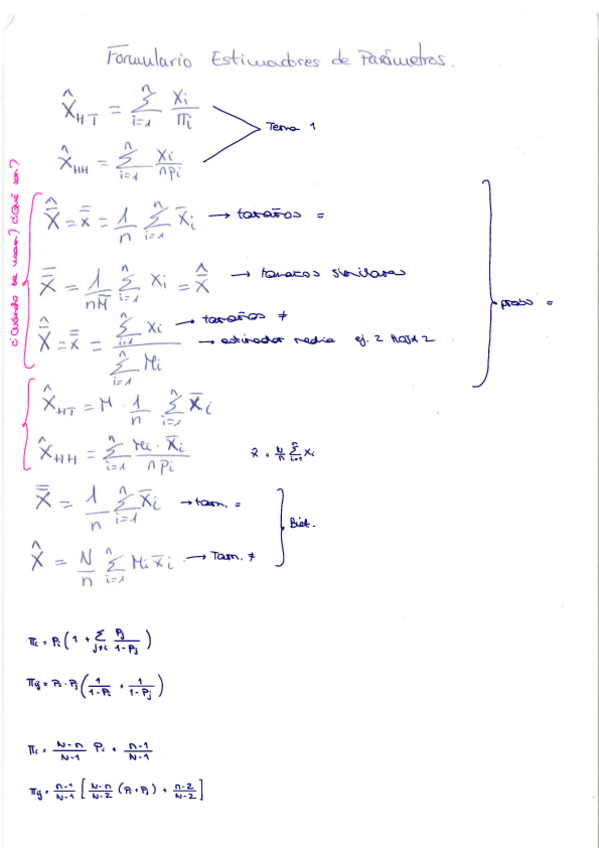 Formulario Estimadores de Parámetros.
X̂_HT = Σ_{i=1}^{n} Xi/πi
Tema 1
X̂_HH = Σ_{i=1}^{n} Xi/(n pi)
¿Cuándo se usan? ¿Qué son?
X̿̂ = x̿ = 1/n Σ_{i=1}^{n} X̄i → tamaños =
X̿ = 1/(n M̄) Σ_{i=1}^{n} Xi = X̄̂ → tamaños similares
probs =
X̿̂ = x̿ = Σ_{i=1}^{n} Xi / Σ_{i=1}^{n} Mi → tamaños ≠
→ estimador media ej. 2 HOJA 2
X̂_HT = M · 1/n Σ_{i=1}^{n} X̄i
X̂_HH = Σ_{i=1}^{n} Mi · X̄i/(n pi)
x̂ = N/n Σ_{i=1}^{n} Xi
X̿ = 1/n Σ_{i=1}^{n} X̄i → tam. =
Biet.
X̂ = N/n Σ_{i=1}^{n} Mi x̄i → Tam. ≠
πi = Pi (1 + Σ_{j≠i} Pj/(1-Pj))
πij = Pi · Pj (1/(1-Pi) + 1/(1-Pj))
πi = (N-n)/(N-1) Pi + (n-1)/(N-1)
πij = (n-1)/(N-1) [(N-n)/(N-2) (Pi + Pj) + (n-2)/(N-2)]